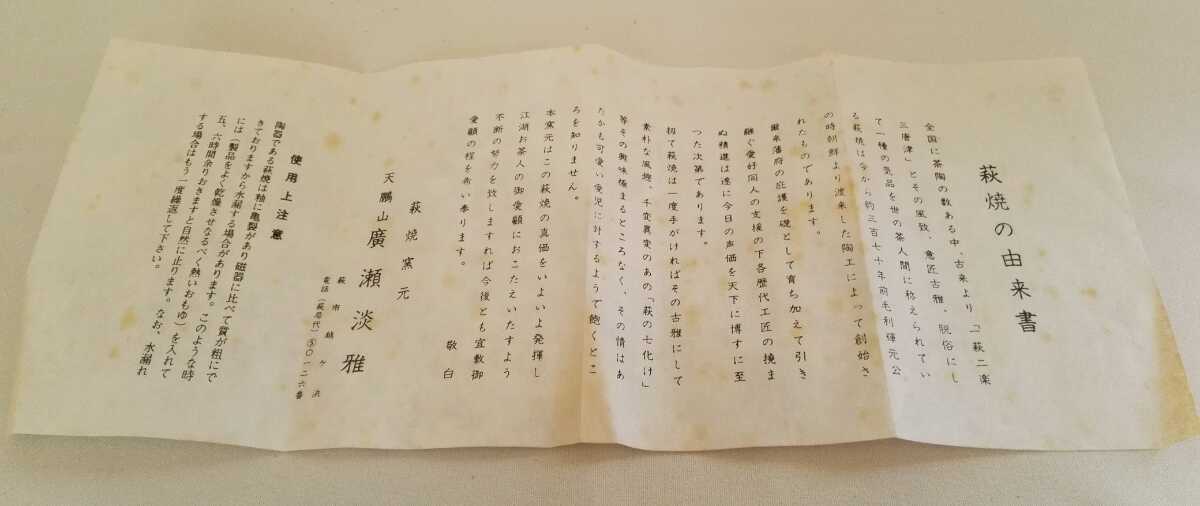 萩焼の由来書
全国に茶陶の数ある中、古来より「一萩二楽
三唐津」とその風致、意匠古雅、脱俗にし
て一種の気品を世の茶人間に称えられてい
る萩焼は今から約三百七十年前毛利輝元公
の時朝鮮より渡来した陶工によって創始さ
れたものであります。
爾来藩府の庇護を礎として育ち加えて引き
継ぐ愛好同人の支援の下各歴代工匠の撓ま
ぬ精進は遂に今日の声価を天下に博すに至
つた次第であります。
扨て萩焼は一度手がければその古雅にして
素朴な風趣、千変異変のあの「萩の七化け」
等その興味極まるところなく、その情はあ
たかも可愛い愛児に対するようで飽くとこ
ろを知りません。
本窯元はこの萩焼の真価をいよいよ発揮し
江湖お茶人の御愛顧におこたえいたすよう
不断の努力を致しますれば今後とも宜敷御
愛顧の程を希い奉ります。
敬白
萩焼窯元
天鵬山 廣瀬淡雅
萩市越ケ浜
電話(萩局代)⑤〇一二六番
使用上注意
陶器である萩焼は釉に亀裂があり磁器に比べて質が粗にで
きておりますから水漏する場合があります。このような時
には(製品をよく乾燥させなるべく熱いおもゆ)を入れて
五、六時間余りおきますと自然に止ります。なお、水漏れ
する場合はもう一度繰返して下さい。